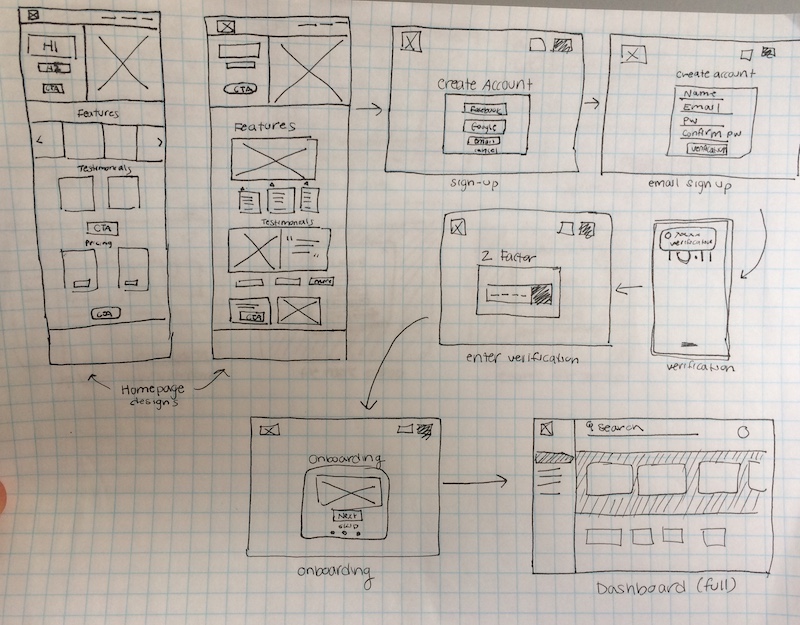 HI
CTA
Features
Testimonials
CTA
Pricing
CTA
CTA
Features
Testimonials
CTA
Homepage
designs
Create Account
Facebook
Google
email
sign-up
create account
Name
Email
PW
Confirm PW
verification
email sign up
verification
10:11
verification
2 Factor
enter verification
Onboarding
Next
skip
onboarding
search
Dashboard (full)